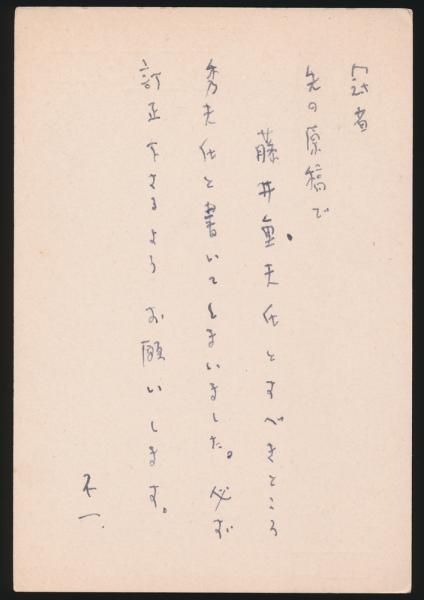 冠省
先の原稿で
藤井重夫氏とすべきところ
秀夫氏と書いてしまいました。必ず
訂正下さるよう お願いします。
不一